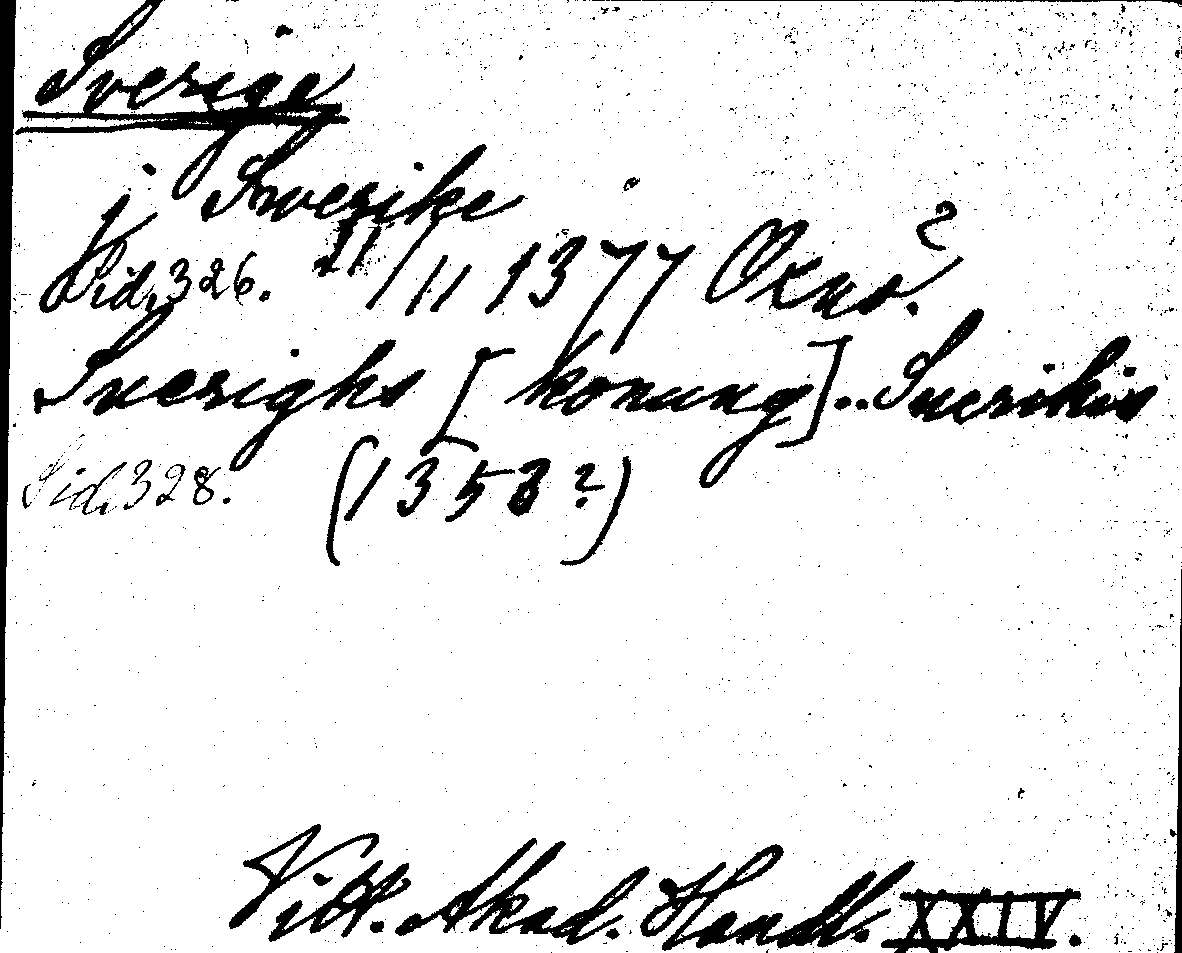 Sverige
j Swerike
Sid. 326. 21/11 1377 Oknö. ?
Sverighs [konung]..Sverikis
Sid. 328. (1353?)
Vitt. Akad. Handl. XXIV.